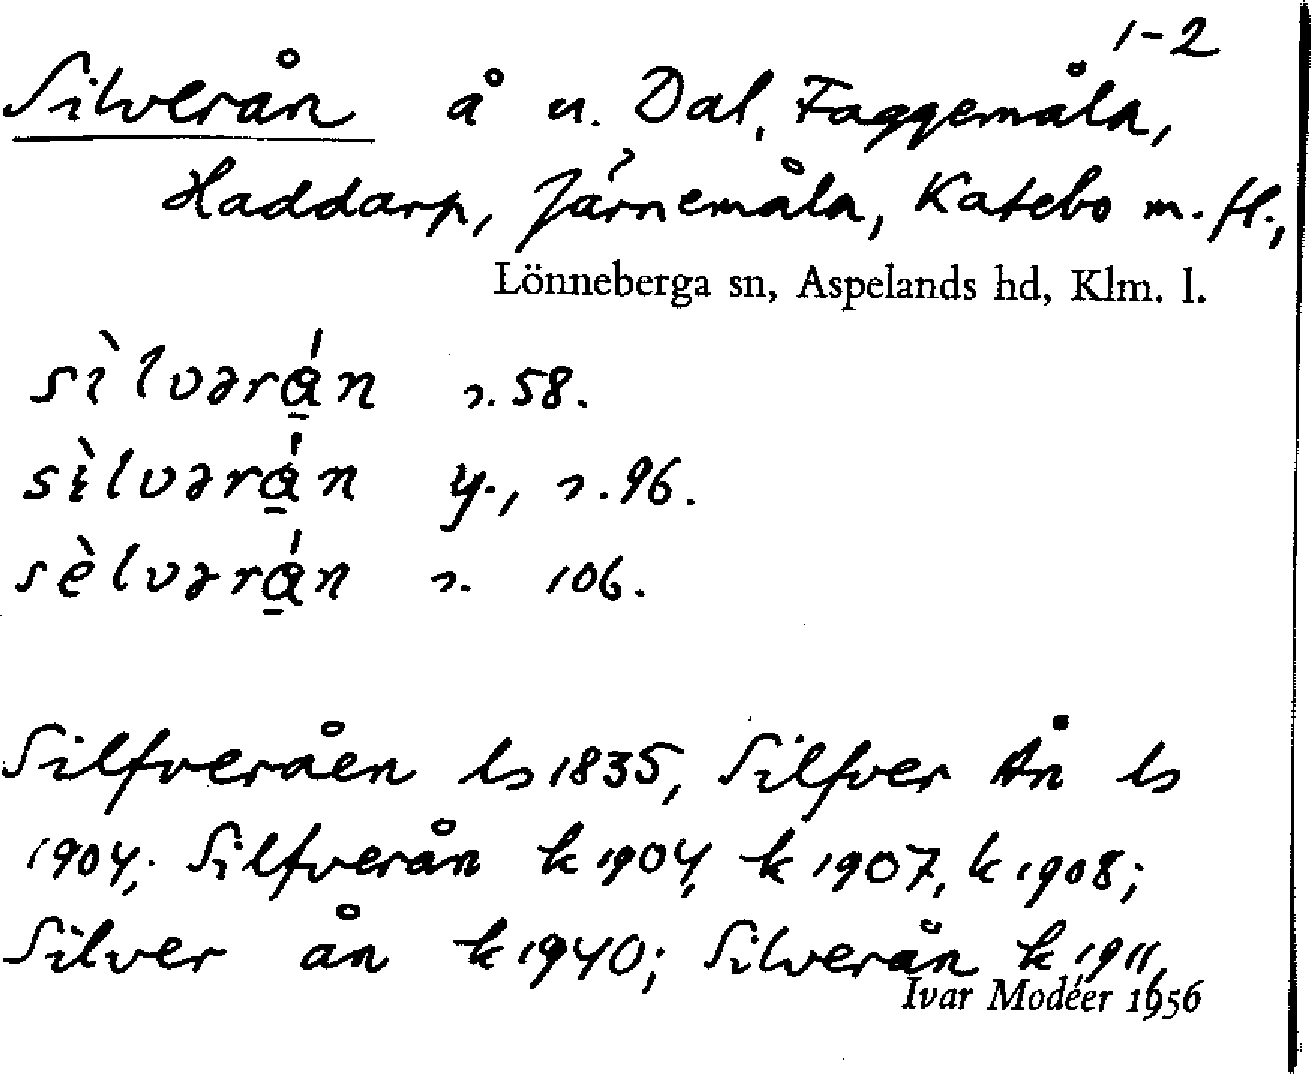 1-2
Silverån å u. Dal, Faggemåla,
Haddarp, Järnemåla, Katebo m. fl.,
Lönneberga sn, Aspelands hd, Klm. l.
sìlvərá̱n s. 58.
sìlvərá̱n y., s. 96.
sèlvərá̱n s. 106.
Silfveråen ls 1835, Silfver Ån ls
1904; Silfverån k 1904, k 1907, k 1908;
Silver ån k 1940; Silverån k 1911,
Ivar Modéer 1956